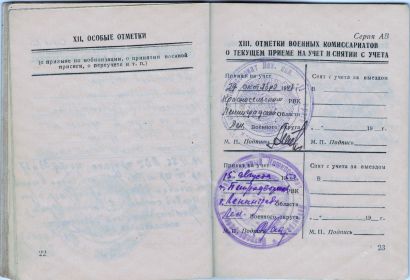 XII. ОСОБЫЕ ОТМЕТКИ
(о приписке по мобилизации, о принятии военной
присяги, о переучете и т. п.)
22
Серия АВ
XIII. ОТМЕТКИ ВОЕННЫХ КОМИССАРИАТОВ
О ТЕКУЩЕМ ПРИЕМЕ НА УЧЕТ И СНЯТИИ С УЧЕТА
Принят на учет
29 октября 19
Красносельским РВК
Ленинградской области
Лен. Военного Округа
М. П. Подпись
Снят с учета за выездом
в
„ - “ 19 - г.
М. П. Подпись
Принят на учет
15 августа
г. Петродворцов РВК
г. Ленинград области
Лен. Военного округа
М. П. Подпись
Снят с учета за выездом
в
„ - “ 19 - г.
М. П. Подпись
23